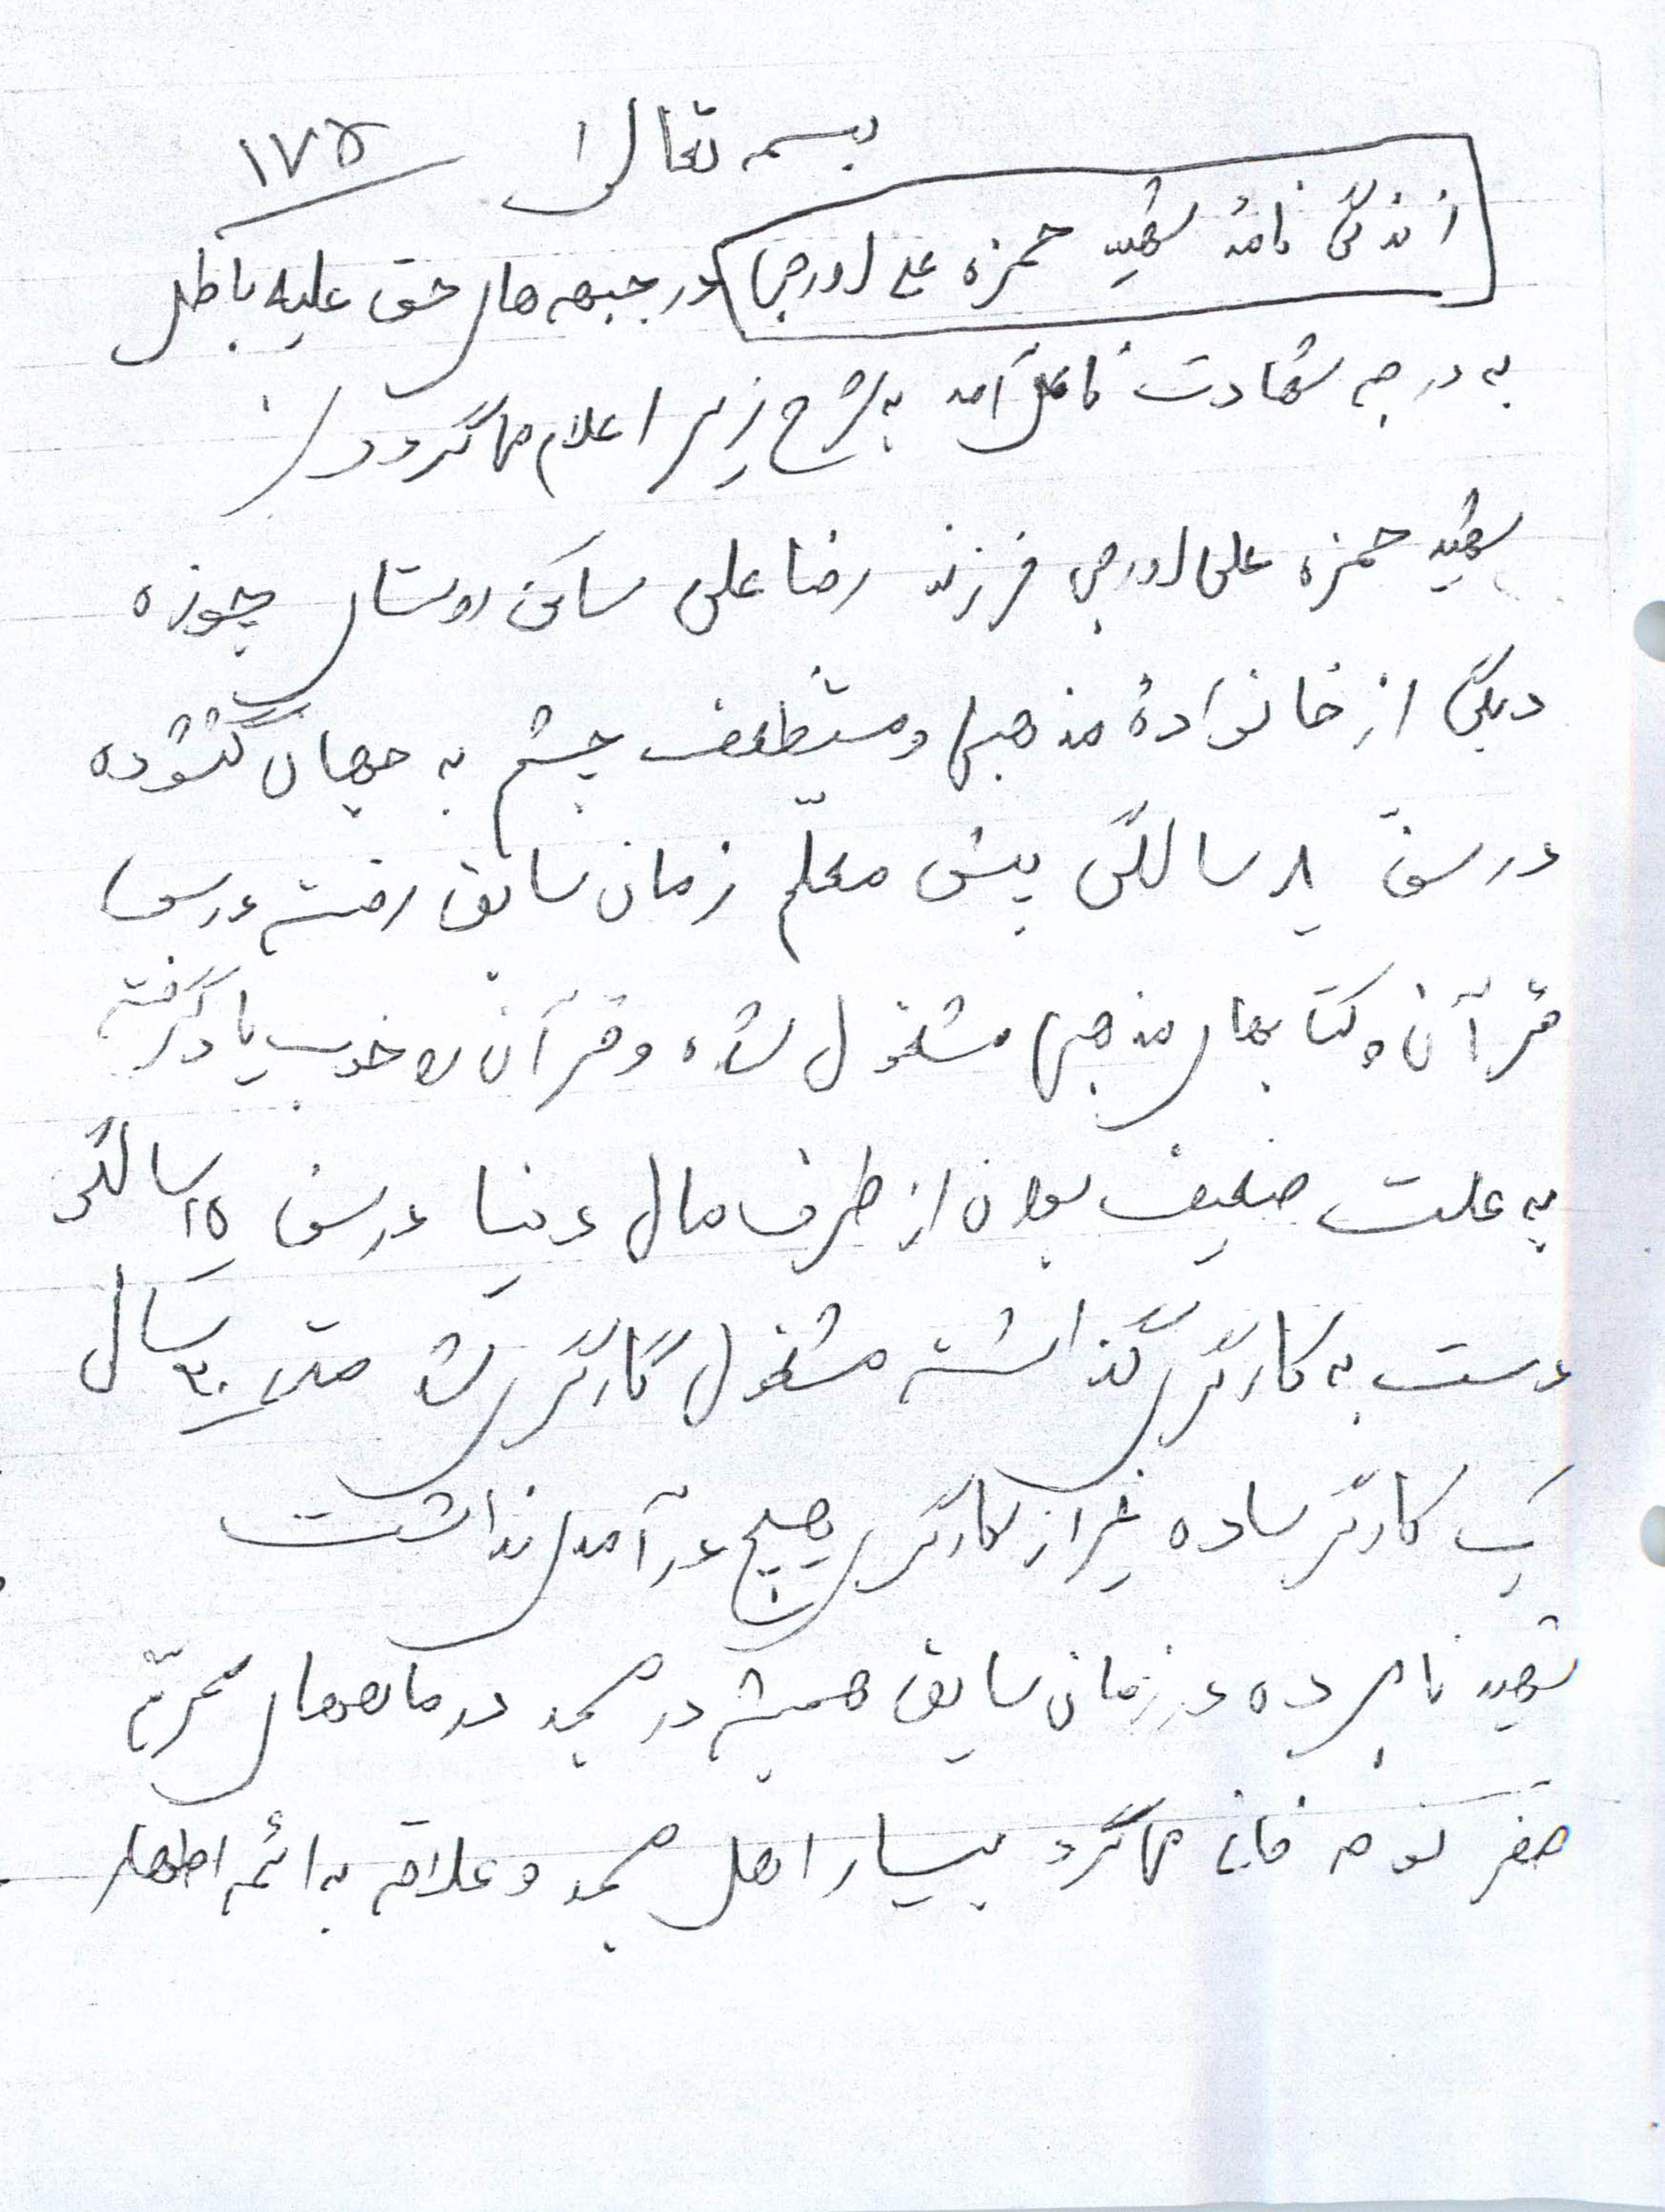 بسمه تعالی
۱۷۵
زندگی نامهٔ شهید حمزه علی اورجی در جبهه های حق علیه باطل
به درجه شهادت نائل آمد به شرح زیر اعلام می گردد:
شهید حمزه علی اورجی فرزند رضا علی ساکن روستای چوزه
دیگی از خانوادهٔ مذهبی و مستضعف چشم به جهان گشوده
در سنّ ۸ سالگی پیش معلّم زمان سابق رفته درسی
قرآن و کتابهای مذهبی مشغول شده و قرآن را خوب یاد گرفته
به علت ضعیف بودن از طرف مال دنیا در سن ۱۵ سالگی
دست به کارگری گذاشته مشغول کارگری شد حتی ۳۰ سال
یک کارگر ساده غیر از کارگری هیچ درآمدی نداشت
شهید نامبرده در زمان سابق همیشه در مسجد در ماههای محرّم
صفر نوحه خانی می کرد بسیار اهل مسجد و علاقه به ائمه اطهار